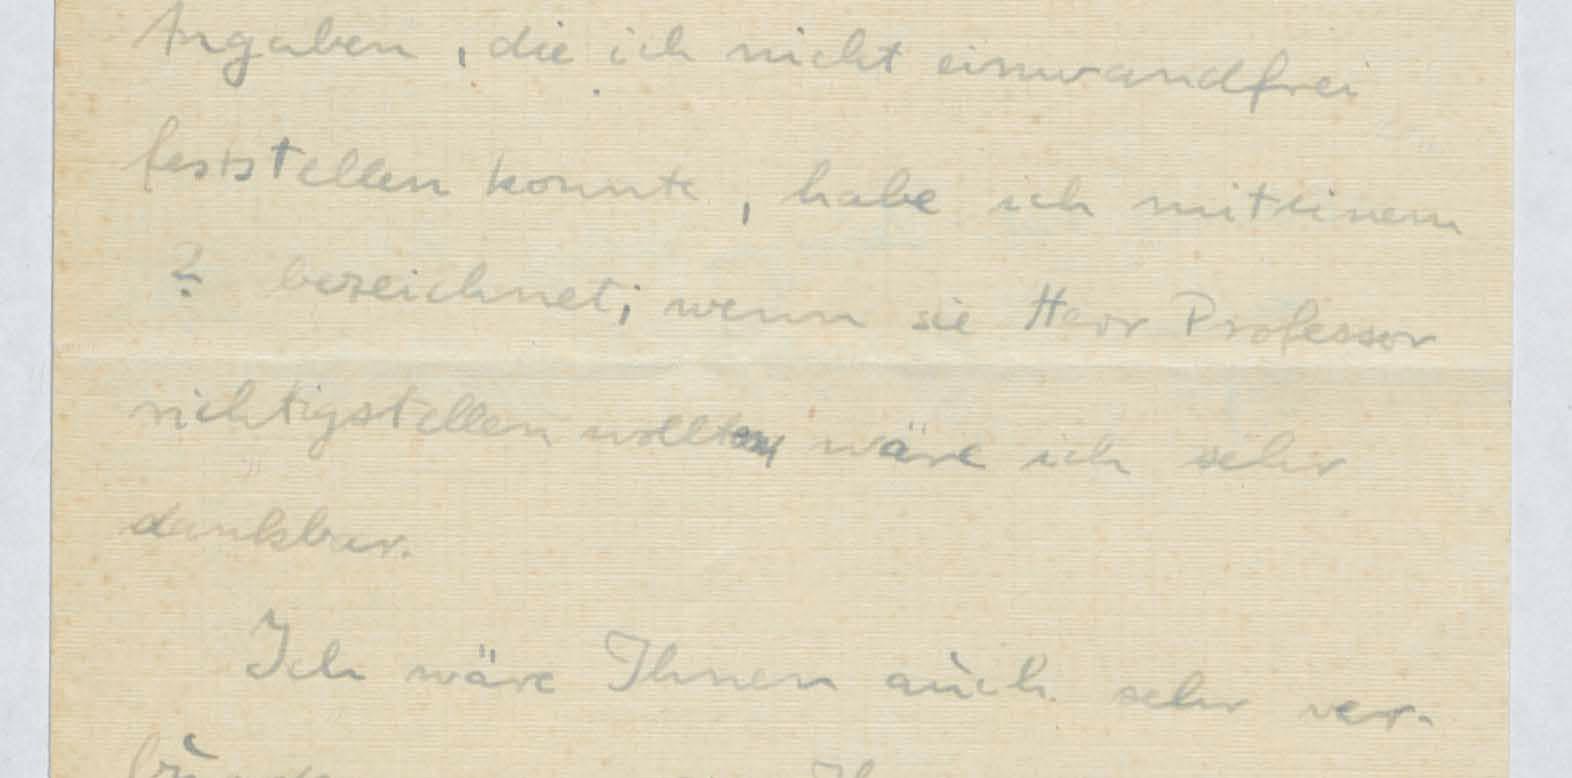 Angaben, die ich nicht einwandfrei
feststellen konnte, habe ich mit einem
? bezeichnet; wenn sie Herr Professor
richtigstellen wollten wäre ich sehr
dankbar.
Ich wäre Ihnen auch sehr ver-